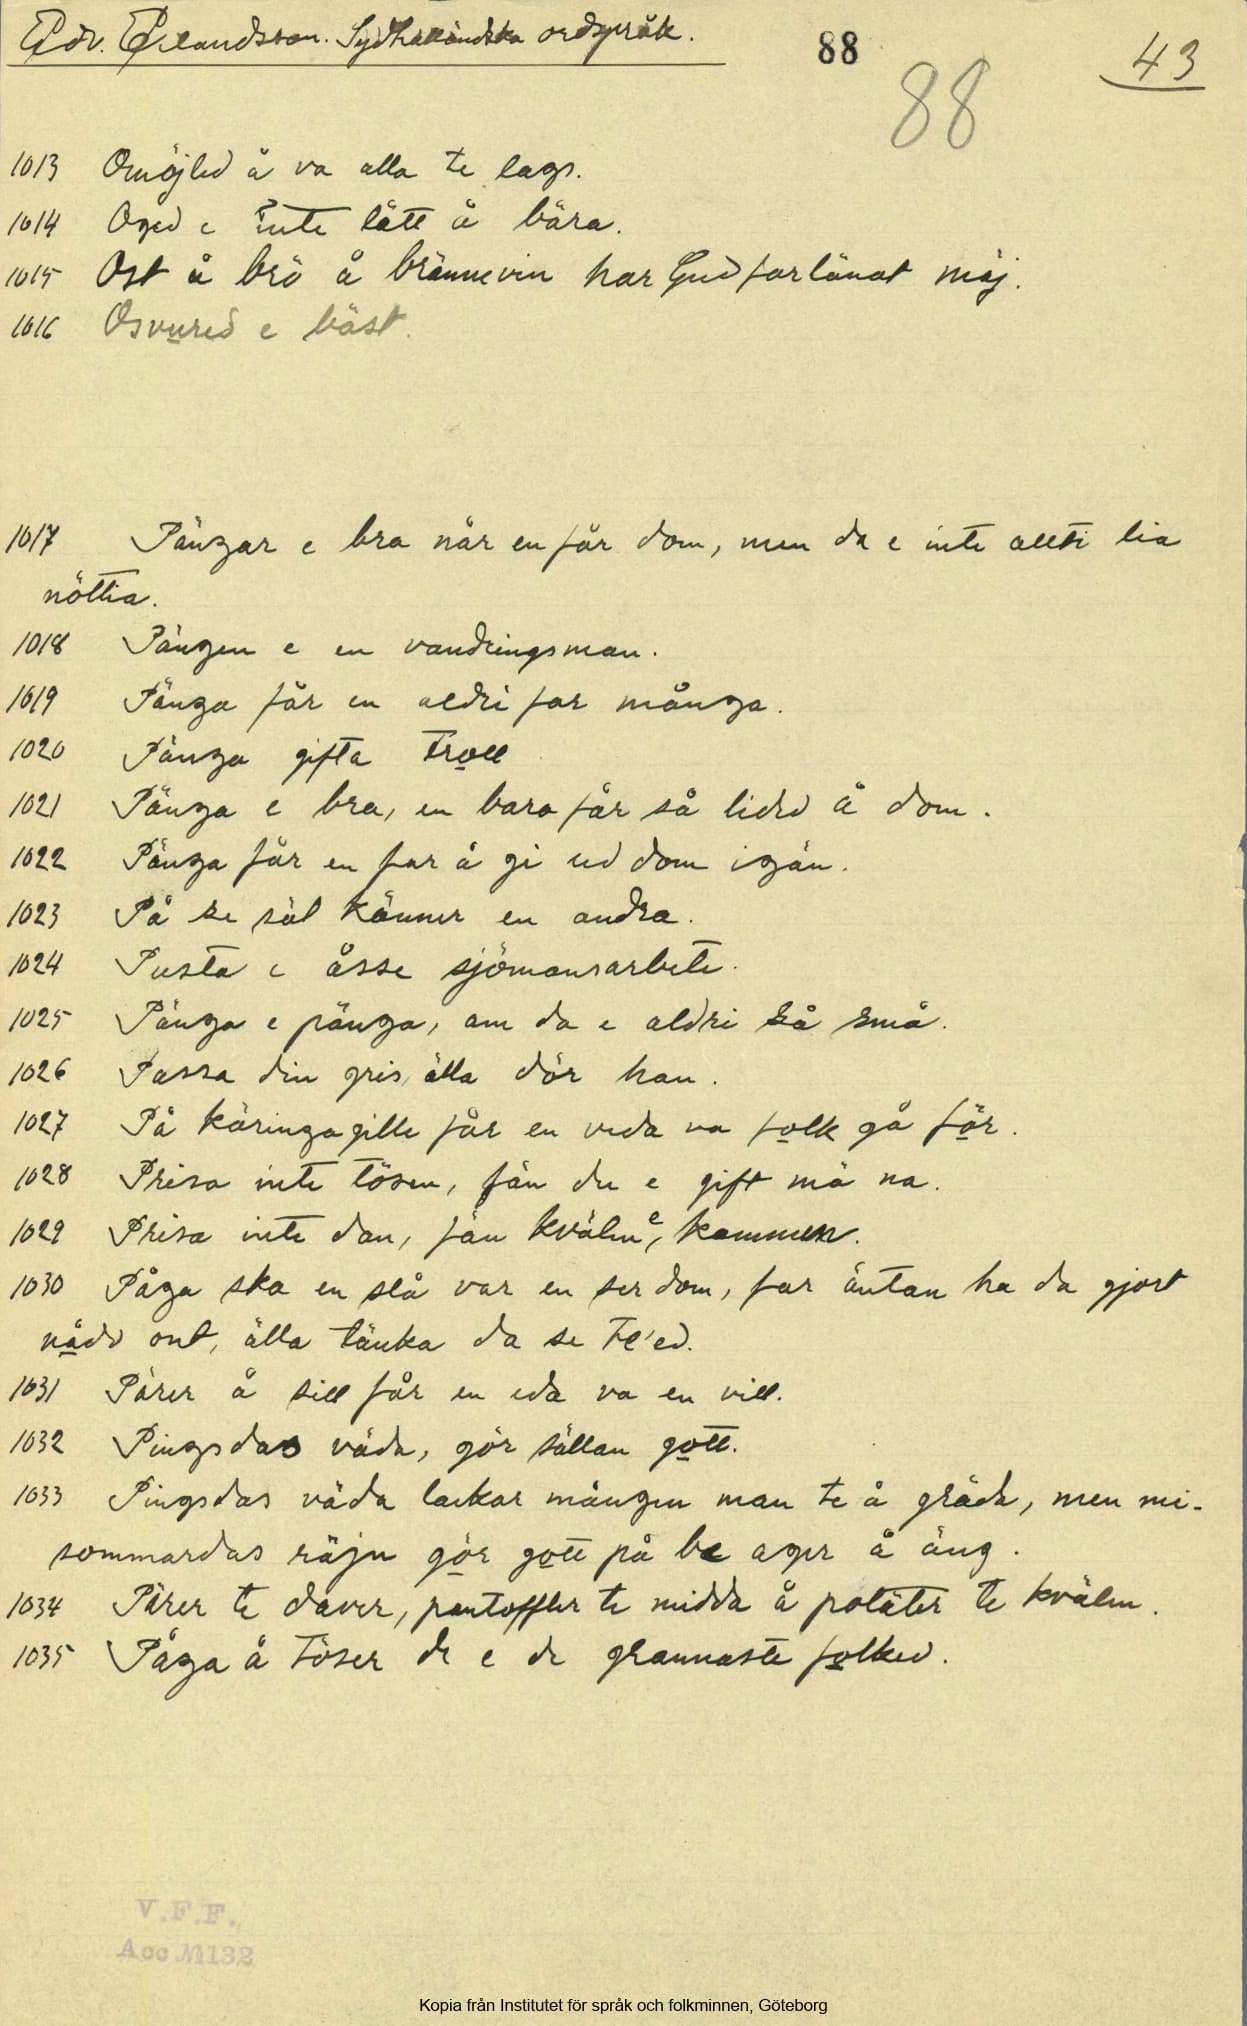 Edv. Erlandsson. Sydhalländska ordspråk. 88 43
88
1013 Omöjled å va alla te lags.
1014 Oged e inte lätt å bära.
1015 Ost å brö å brännevin har Gud forlänat mäj.
1016 Osvured e bäst.
1017 Pängar e bra når en får dom, men da e inte allti lia
nöttia.
1018 Pängen e en vandringsman.
1019 Pänga får en aldri for många.
1020 Pänga gifta troll
1021 Pänga e bra, en bara får så lided å dom.
1022 Pänga får en for å gi ud dom igän.
1023 På se säl känner en andra.
1024 Pusta e åsse sjömansarbete.
1025 Pänga e pänga, om da e aldri så små.
1026 Passa din gris, älla dör han.
1027 På käringagille får en veda va folk gå för.
1028 Prisa inte tösen, fän du e gift mä na.
1029 Prisa inte dan, fän kvälen, kommer.
1030 Påga ska en slå var en ser dom, for äntan ha da gjort
nåd ont, älla tänka da se te'ed.
1031 Pärer å sill får en eda va en vill.
1032 Pingsdas väda, gör sällan gott.
1033 Pingsdas väda lackar mången man te å gräda, men mi-
sommardas räjn gör gott på be ager å äng.
1034 Pärer te daver, pantoffler te midda å potäter te kvälen.
1035 Påga å töser de e de grannaste folked.
V.F.F.
Acc M132
Kopia från Institutet för språk och folkminnen, Göteborg